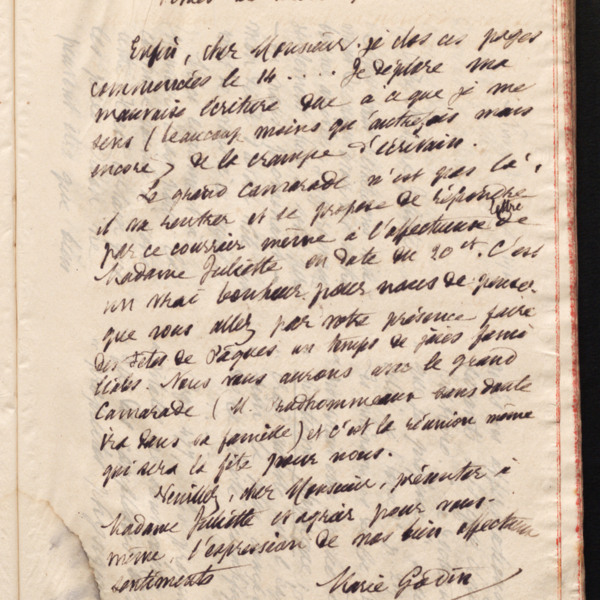 Enfin, cher Monsieur, je clos ces pages
commencées le 14 .... Je déplore ma
mauvaise écriture due à ce que je me
sens (beaucoup moins qu'autrefois mais
encore) de la crampe d'écrivain.
Le grand camarade n'est pas là,
il va rentrer et se propose de répondre
par ce courrier même à l'affectueuse lettre de
Madame Juliette en date du 20 ct. C'est
un vrai bonheur pour nous de penser
que vous allez par votre présence faire
des Fêtes de Pâques un temps de joies fami
liales. Nous vous aurons avec le grand
Camarade (M. Pradhommeaux sans doute
ira dans sa famille) et c'est la réunion même
qui sera la fête pour nous.
Veuillez, cher Monsieur, présenter à
Madame Juliette et agréer pour vous-
même, l'expression de nos bien affectueux
sentiments
Marie Godin